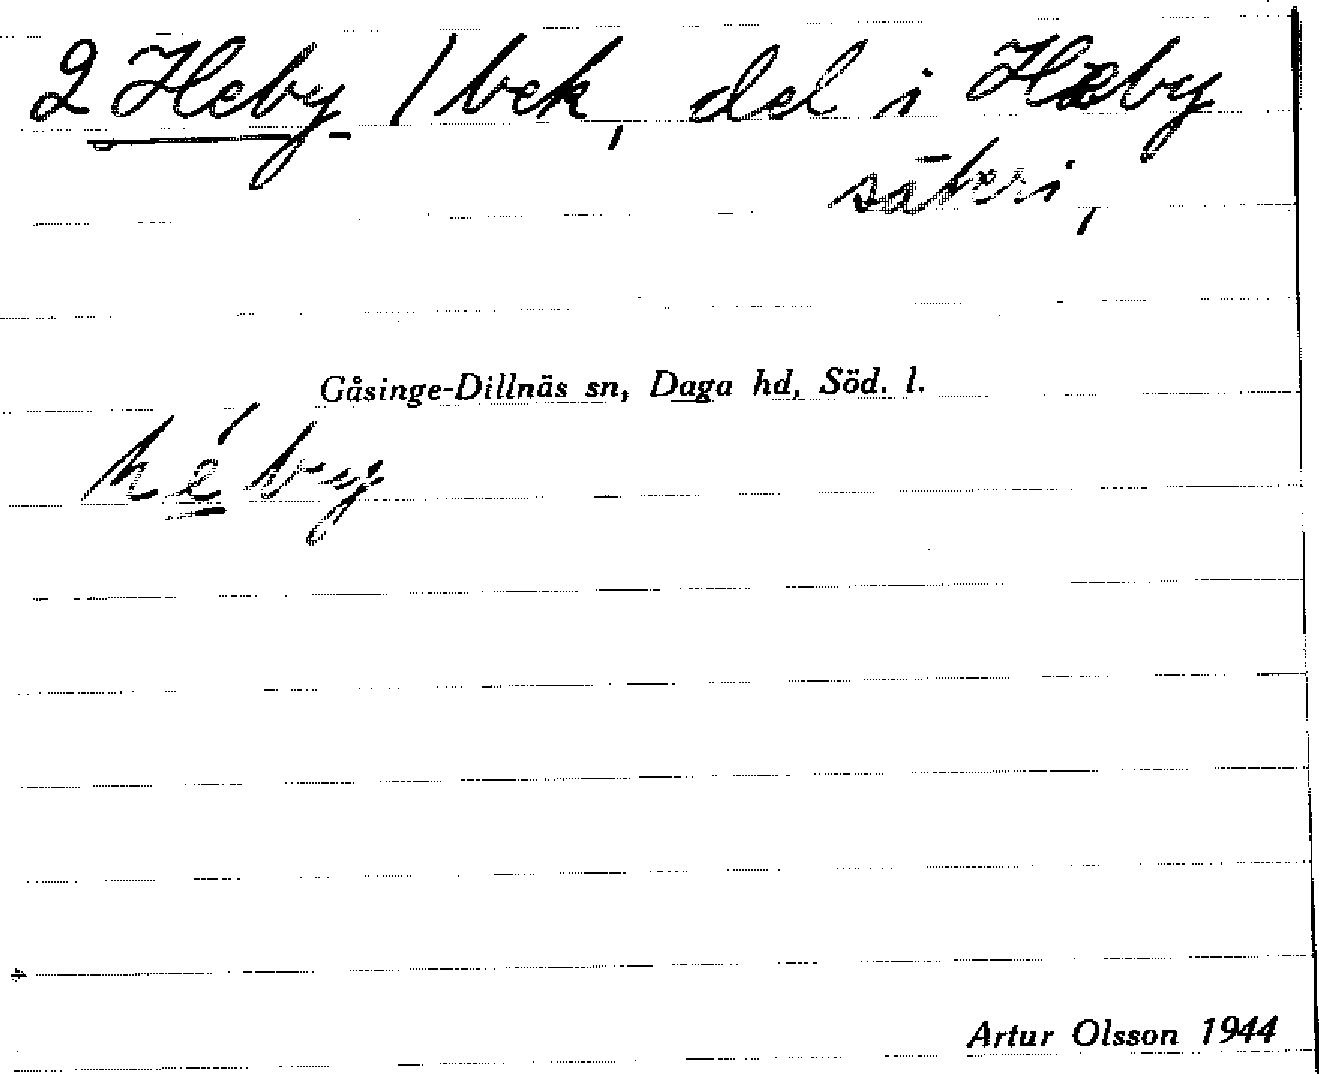 2 Heby / bek, del i Heby
säteri,
Gåsinge-Dillnäs sn, Daga hd, Söd. l.
héby
Artur Olsson 1944